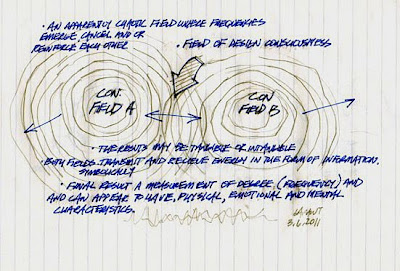 • AN APPARENTLY CHAOTIC FIELD WHERE FREQUENCIES
EMERGE, CANCEL AND OR
REINFORCE EACH OTHER
• FIELD OF DESIGN CONSCIOUSNESS
CON.
FIELD A
CON
FIELD B
• THE RESULTS MAY BE TANGIBLE OR INTANGIBLE
• BOTH FIELDS TRANSMIT AND RECIEVE ENERGY IN THE FORM OF INFORMATION.
SYMBOLICALLY
• FINAL RESULT A MEASUREMENT OF DEGREE (FREQUENCY) AND
AND CAN APPEAR TO HAVE, PHYSICAL, EMOTIONAL AND MENTAL
CHARACTERISTICS.
3.6.2011